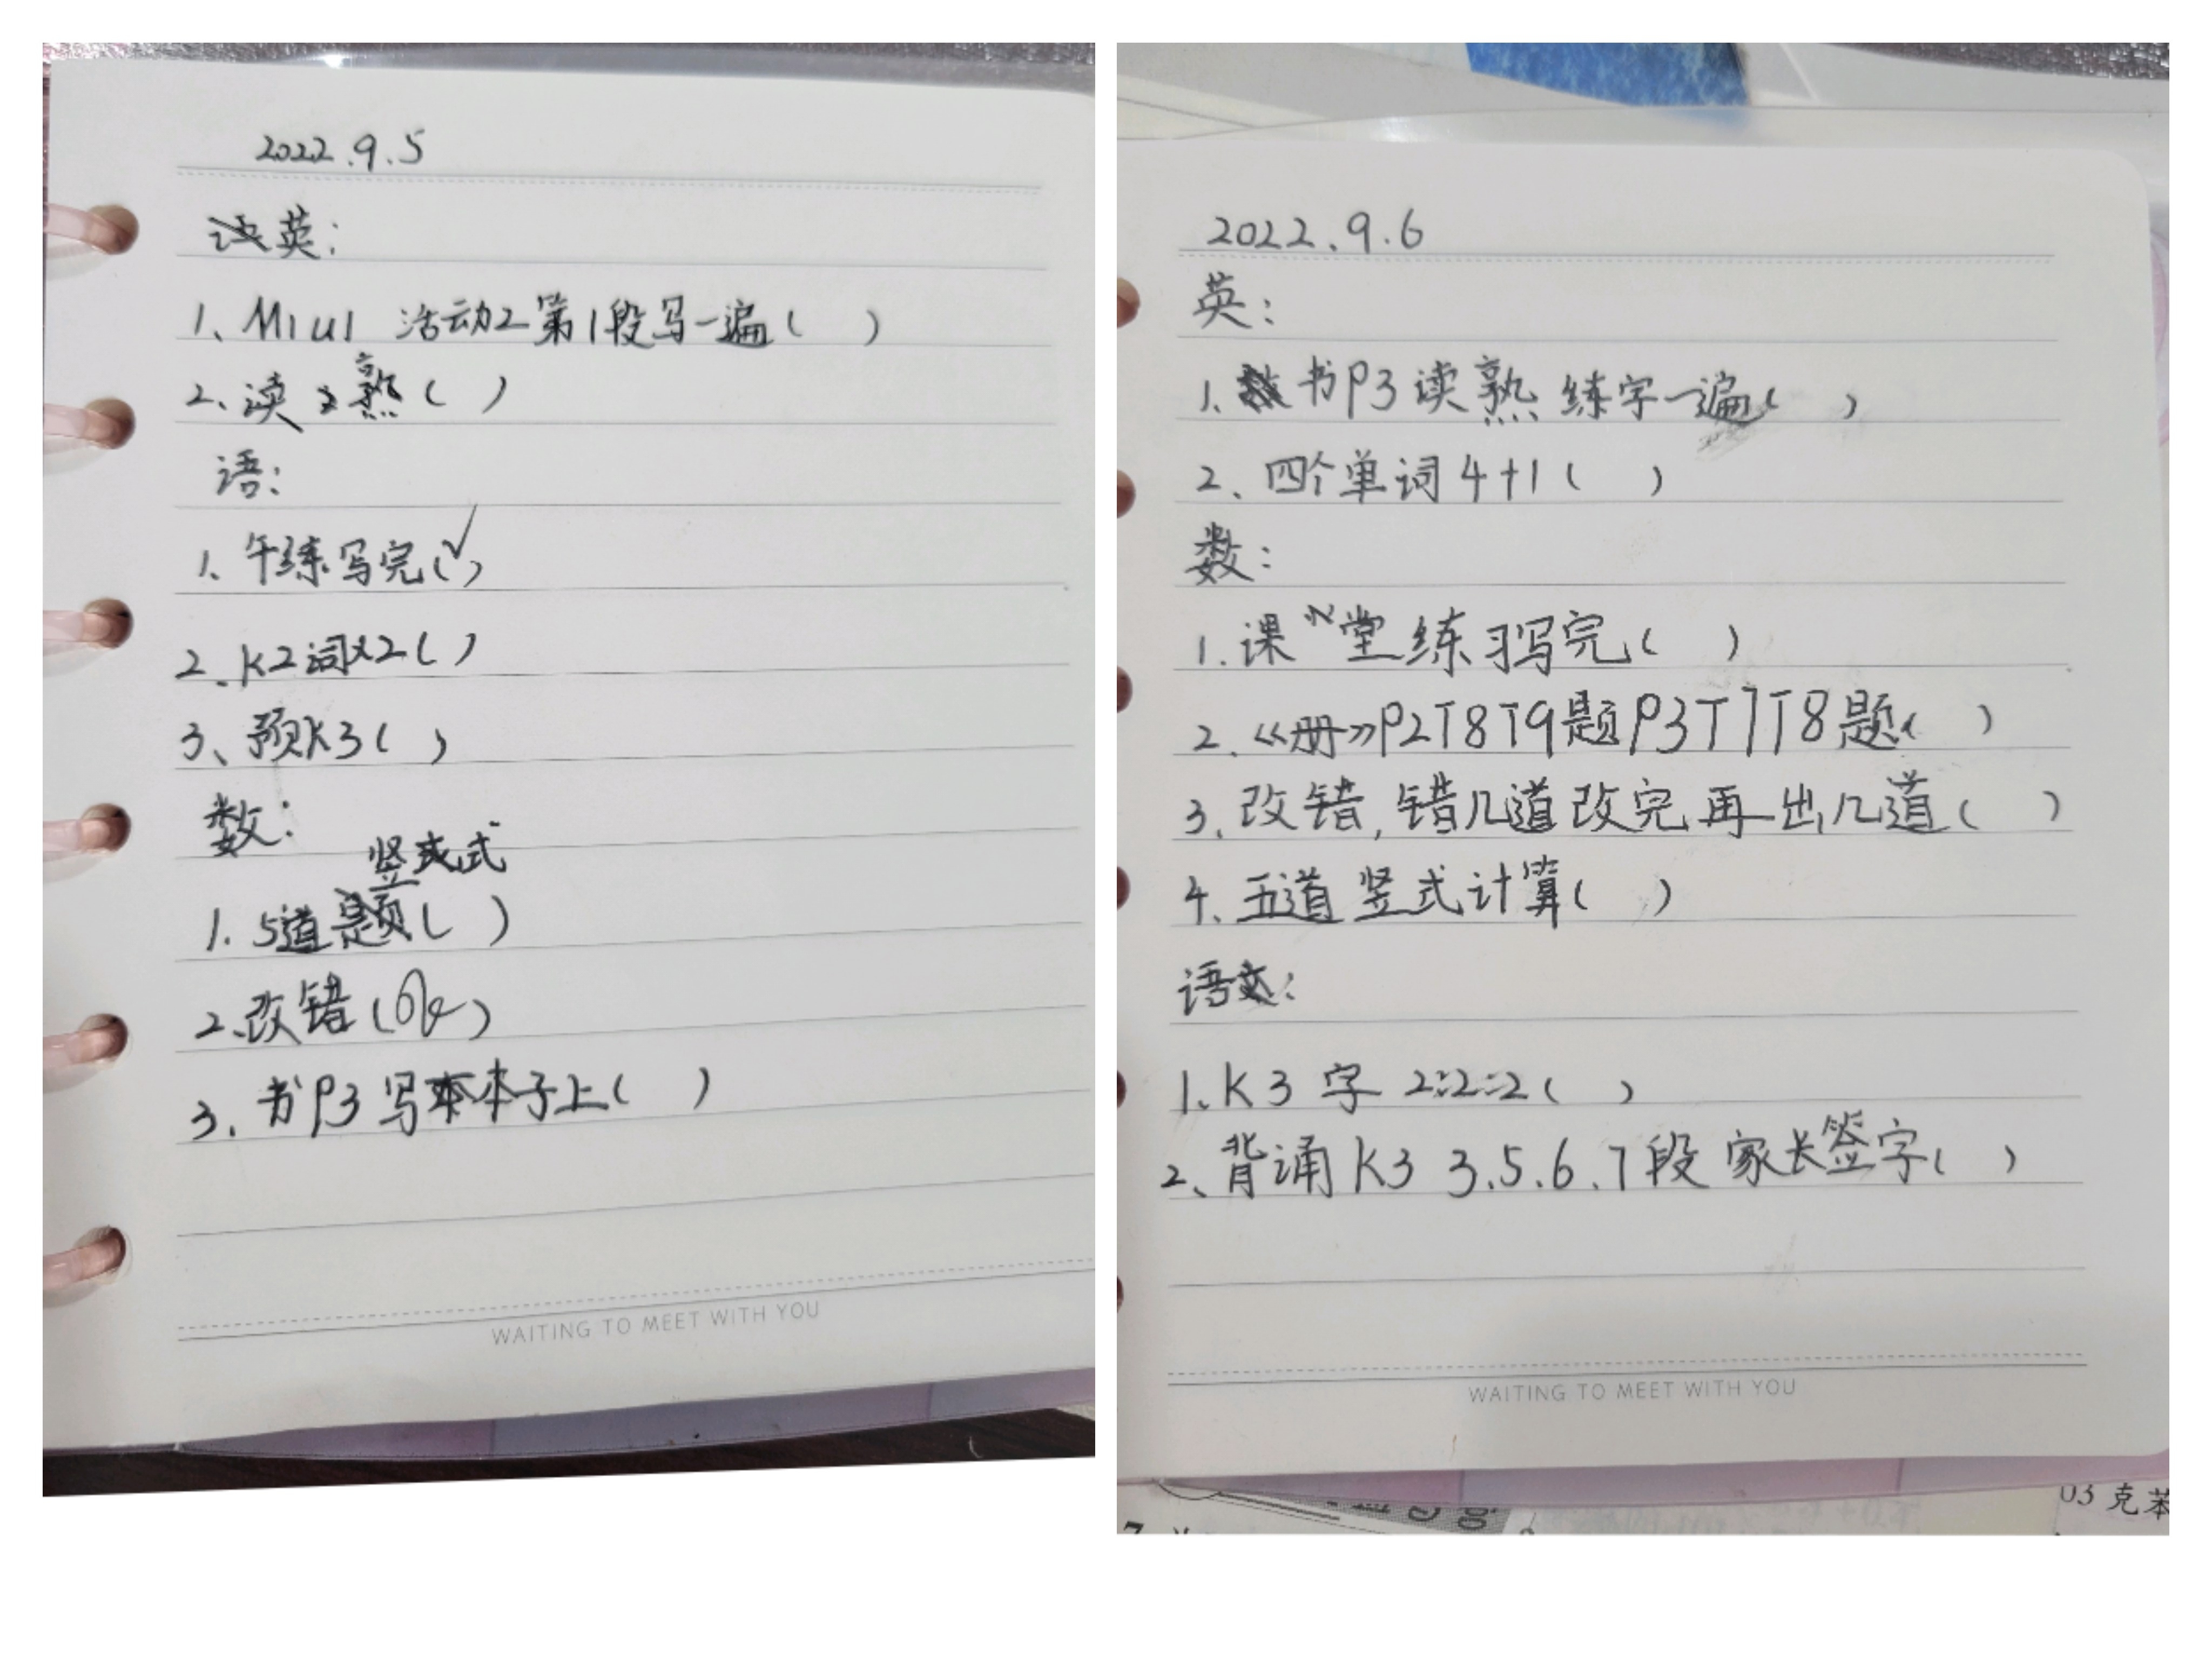 2022.9.5
英:
1、M1U1 活动2第1段写一遍( )
2、读熟( )
语:
1、午练写完(√)
2、K2词x2( )
3、预K3( )
数:
竖式
1.5道题( )
2.改错(ok)
3.书P3写本子上( )
WAITING TO MEET WITH YOU
2022.9.6
英:
1、书P3读熟 练字一遍( )
2、四个单词4+1( )
数:
1.课堂练习写完( )
2.《册》P2T8T9题P3T7T8题( )
3.改错,错几道改完再出几道( )
4、五道竖式计算( )
语文:
1、K3字 2:2:2( )
2、背诵K3 3.5.6.7段 家长签字( )
WAITING TO MEET WITH YOU
03 克苯